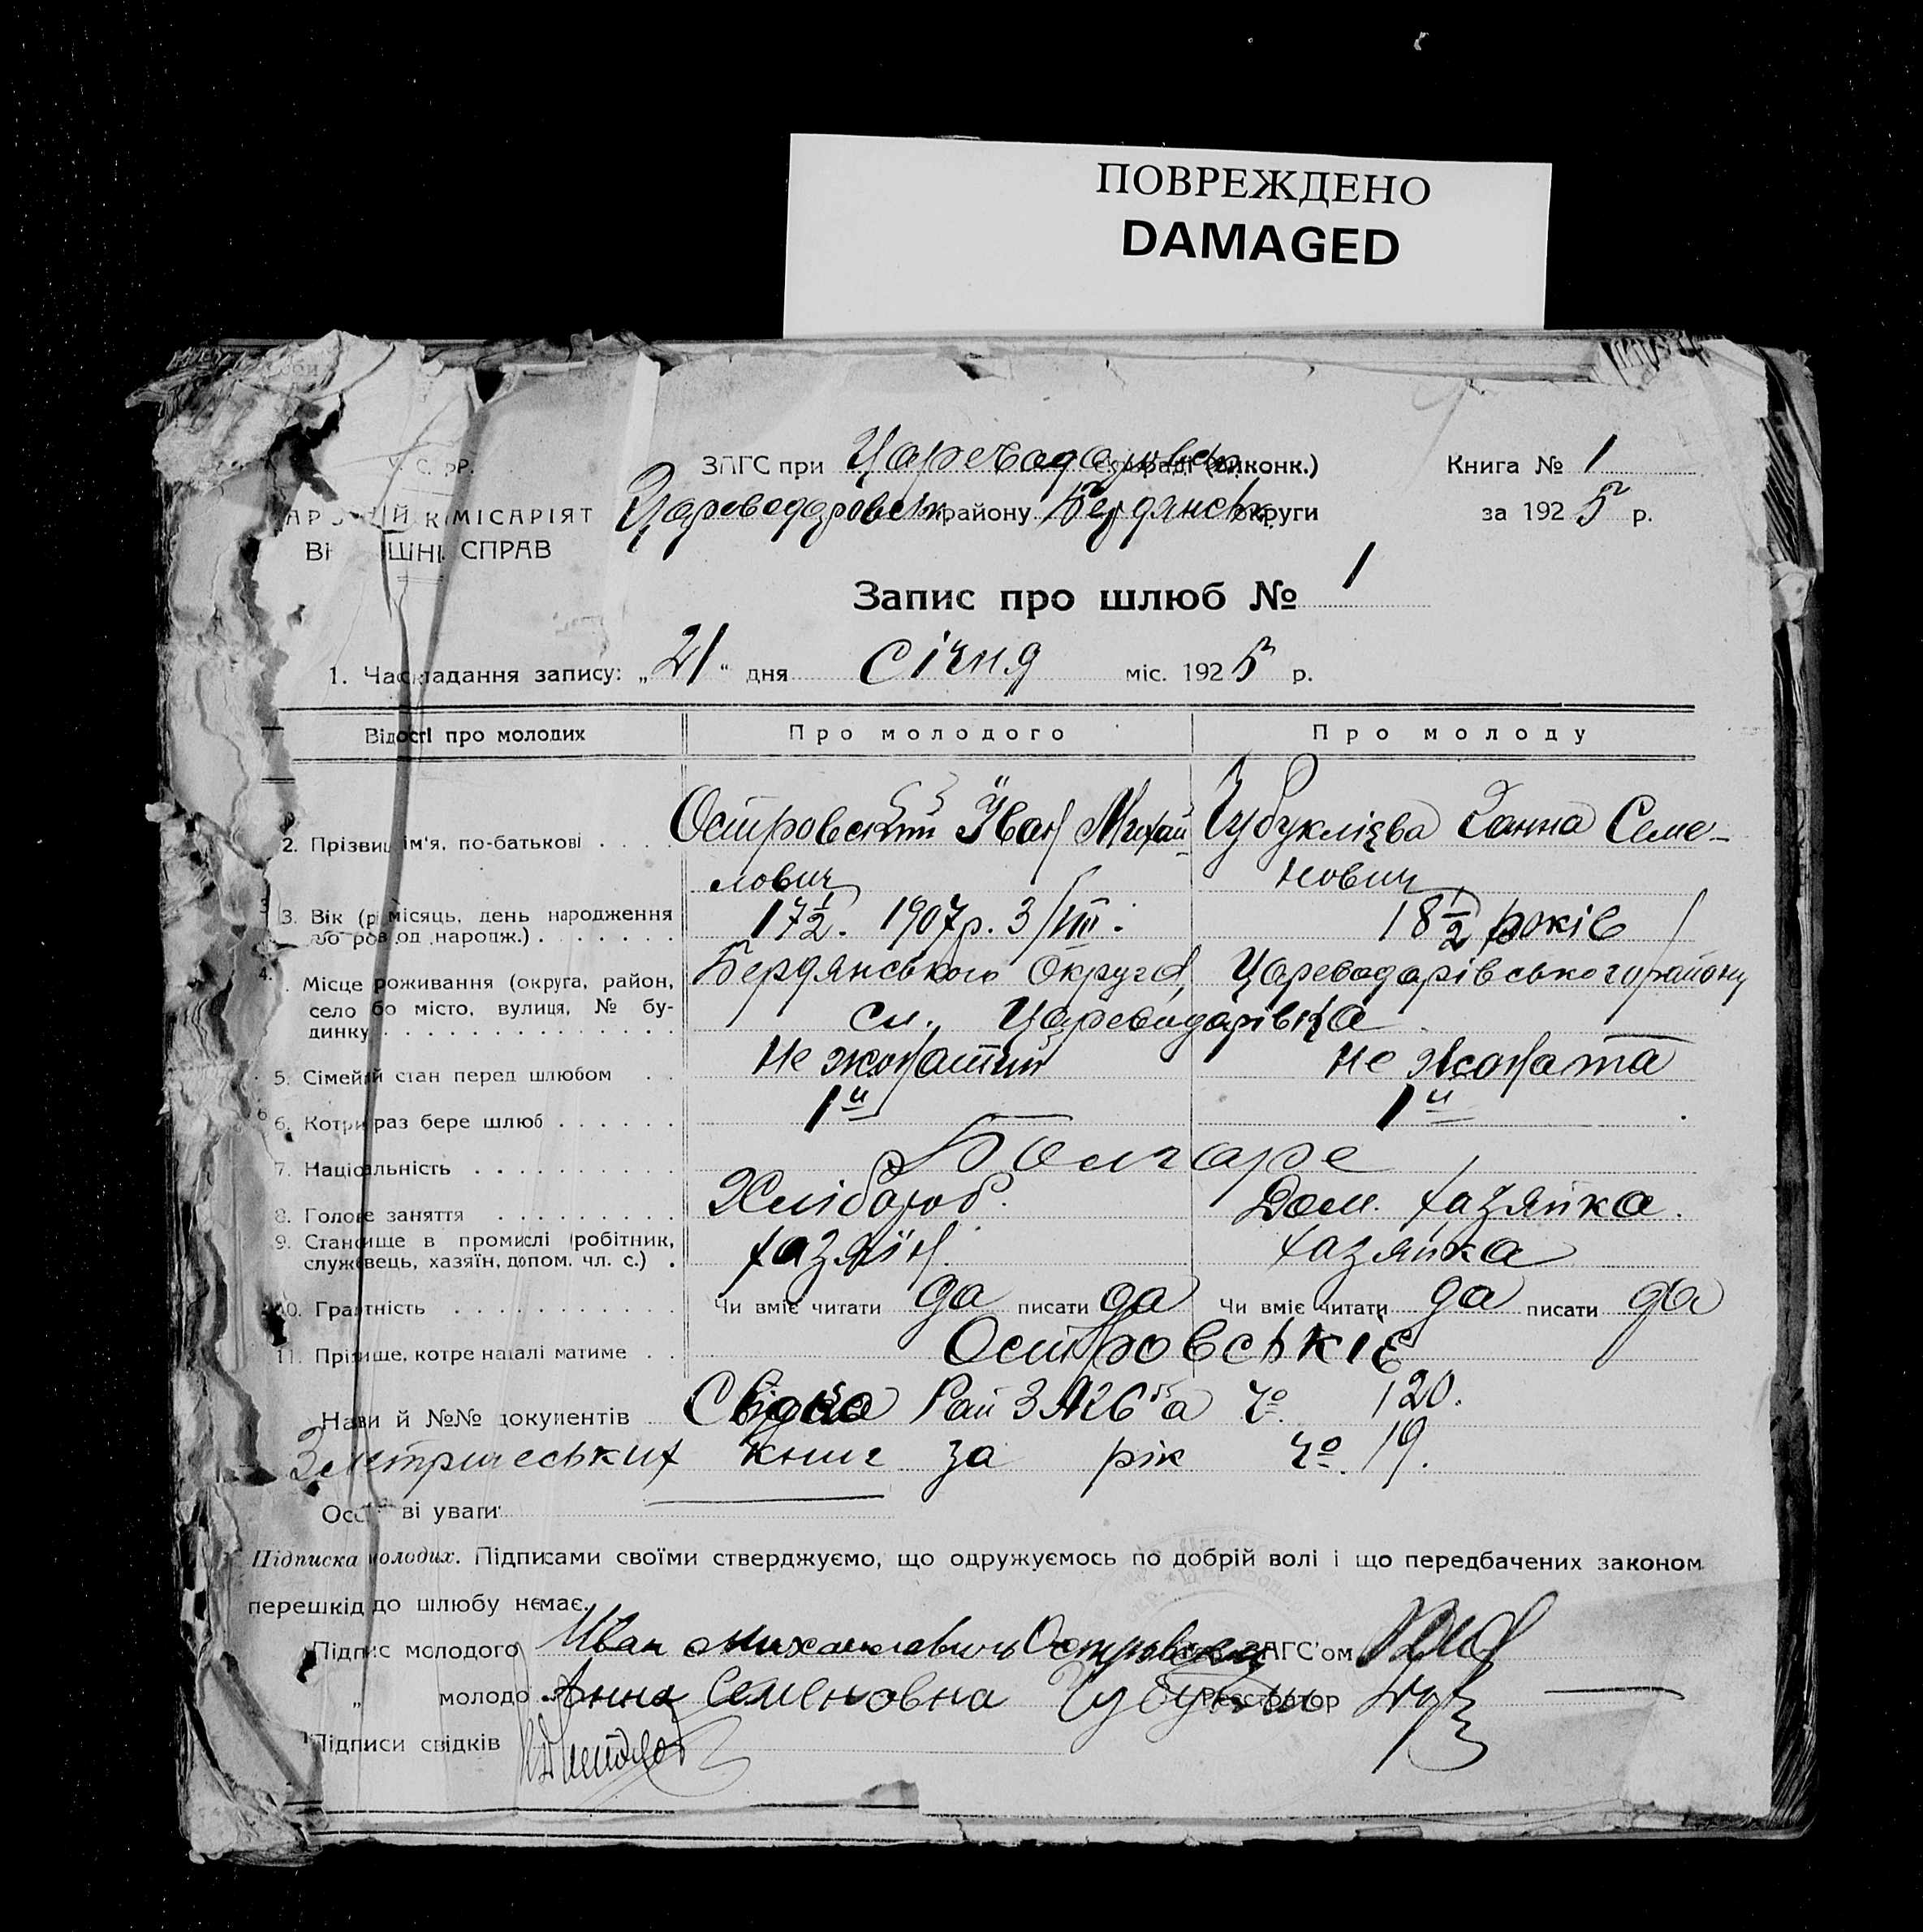 ПОВРЕЖДЕНО
DAMAGED
У. С. Р.Р.
ЗАГС при Царевадаровск (виконк.)
Книга № 1
КОМІСАРІЯТ
Царевадаровськ району Бердянськ округи
за 1925 р.
СПРАВ
Запис про шлюб № 1
1. Час складання запису: „21“ дня Січня міс. 1925 р.
Відості про молодих
Про молодого
Про молоду
2. Прізвище, ім'я, по-батькові . . . .
Островський Їван Михай-
лович
Чубуклієва Ганна Семе-
нович
3. Вік (р місяць, день народження
народж.) . . . . . .
17½. 1907р. 3/VIII.
18½ років
4. Місце проживання (округа, район,
село або місто, вулиця, № бу-
динку . . . . . . . . . . . . . . .
Бердянського Округа, Царевадарівського району
см. Царевадарівка
5. Сімейний стан перед шлюбом . .
Не жонатий
Не жоната
6. Котрий раз бере шлюб . . . . . .
1й
1й
7. Національність . . . . . . . . . .
Болгаре
8. Голове заняття . . . . . . . . .
Хлібороб.
Дом. хазяйка.
9. Становище в промислі (робітник,
службовець, хазяїн, допом. чл. с.) .
хазяїн.
хазяйка
10. Грамотність . . . . . . . . . . .
Чи вміє читати да писати да
Чи вміє читати да писати да
11. Прізвище, котре надалі матиме . .
Островськіє
Назви й №№ документів
Рай ЗАГСа Чо. 120.
книг за рік Чо. 19.
Особливі уваги:
Підписка молодих. Підписами своїми стверджуємо, що одружуємось по добрій волі і що передбачених законом
перешкід до шлюбу немає.
Підпис молодого Иван Михаилович Островский ЗАГС'ом
„ молодо Анна Семеновна Чубукли Реєстратор
Підписи свідків